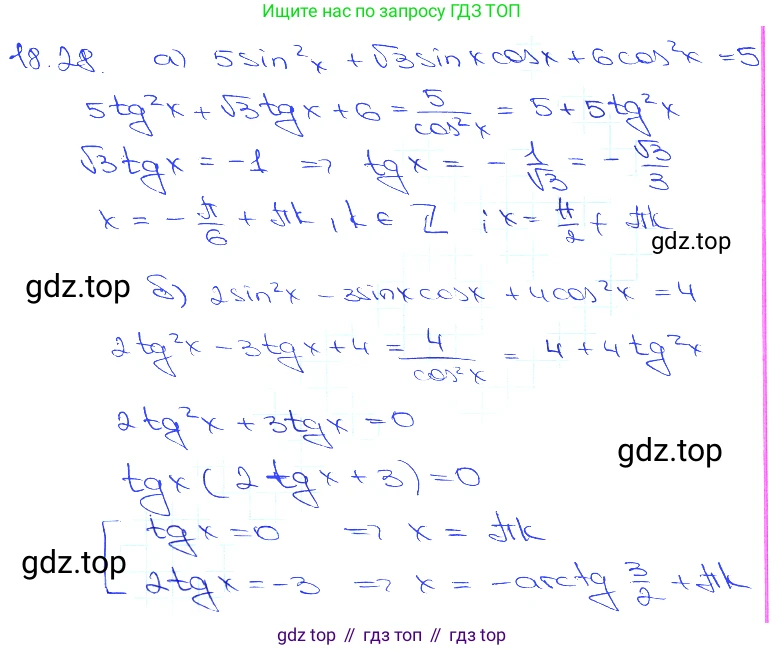 Ищите нас по запросу ГДЗ ТОП
18.28. а) 5sin²x + √3sinxcosx + 6cos²x = 5
5tg²x + √3tgx + 6 = 5/cos²x = 5 + 5tg²x
√3tgx = -1 => tgx = - 1/√3 = - √3/3
x = - π/6 + πk, k ∈ Z ; x = π/2 + πk
gdz.top
gdz.top
б) 2sin²x - 3sinxcosx + 4cos²x = 4
2tg²x - 3tgx + 4 = 4/cos²x = 4 + 4tg²x
2tg²x + 3tgx = 0
gdz.top
tgx(2tgx + 3) = 0
[ tgx = 0 => x = πk
gdz.top
2tgx = -3 => x = -arctg 3/2 + πk
gdz top // гдз топ // gdz top